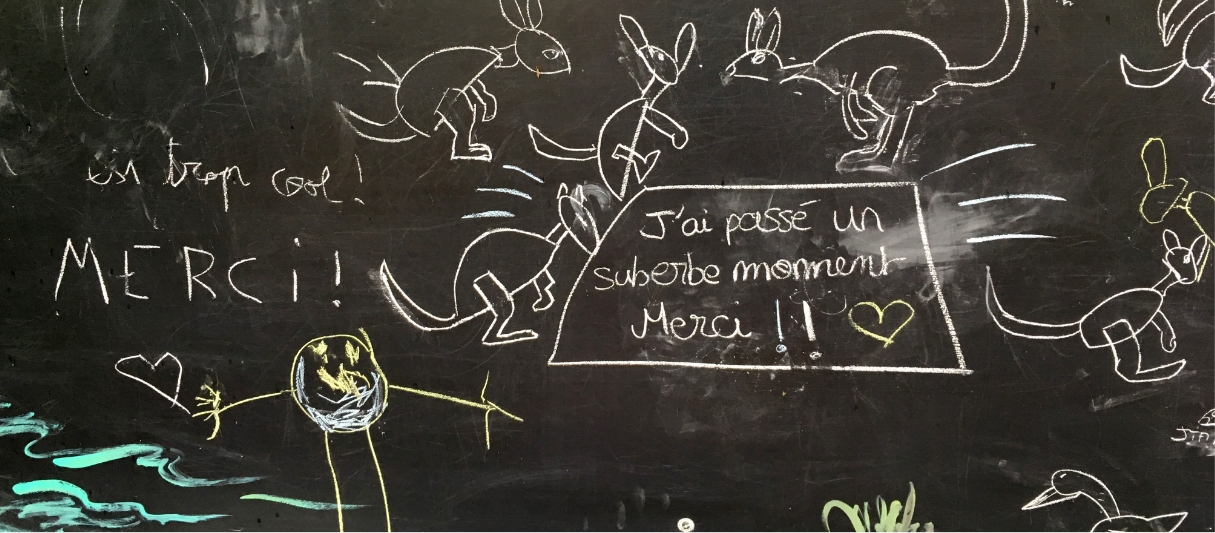 trop cool !
MERCi !
J'ai passé un
suberbe momment
Merci !!